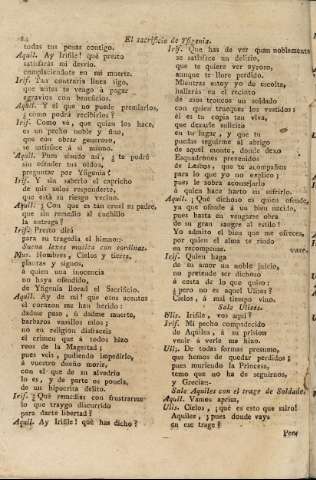 El sacrificio de Yfigenia.
todas tus penas contigo.
Aquil. Ay Irifile! qué presto
satisfarás mi desvío,
complaciendote en mi muerte.
Irif. Tan contraria línea sigo,
que antes te vengo á pagar
agravios con beneficio.
Aquil. Y el que no puede premiarlos,
cómo podrá recibirlos?
Irif. Como vé, que quien los hace,
es un pecho noble y fino,
que con obrar generoso,
se satisface á sí mismo.
Aquil. Pues siendo así, te podré
sin ofender tus oídos,
preguntar por Yfigenia?
Irif. Y sin saberlo el capricho
de mis zelos responderte,
que está su riesgo vecino.
Aquil. Con que es tan cruel su padre,
que sin remedio al cuchillo
la entrega?
Irif. Presto dirá
para su tragedia el himno:-
Suena lexos musica con sordinas.
Mus. Hombres, Cielos y fieras,
plantas y signos,
á quien una inocencia
no haya ofendido,
de Yfigenia llorad el Sacrificio.
Aquil. Ay de mí! que esos acentos
el corazon me han herido:
dadme paso, ó dadme muerte,
barbaros vasallos míos;
no en religion disfraceis
el crimen que á todos hizo
reos de la Magestad;
pues veis, pudiendo impedirlo,
á vuestro dueño morir,
con el que de su alvedrio
lo es, y de parte os poneis,
de mi hipocrita delito.
Irif. Qué remedias con frustrarme
lo que traygo discurrido
para darte libertad?
Aquil. Ay Irifile! qué has dicho?
Irif. Que has de ver quan noblemente
se satisface un delirio,
que te quiere ver ayroso,
aunque te llore perdido.
Mientras estoy yo de escolta,
hallarás en el recinto
de esos troncos un soldado
con quien trueques los vestidos:
él es tu copia tan viva,
que dexarle solicito
en tu lugar, y que tu
puedas seguirme al abrigo
de aquel monte, donde dexo
Esquadrones prevenidos
de Lesbos, que te acompañen
para lo que yo no explico;
pues le sobra aconsejarlo
á quien hace harto en sufrirlo.
Aquil. ¡Qué dichoso es quien ofende,
ya que ofende á un bien nacido,
pues hasta en vengarse obra
de su gran sangre al estilo!
Yo admito el bien que me ofreces,
por quien el alma te rindo
en recompensa. vase.
Irif. Quien haga
de su amor un noble juicio,
no pretende ser dichoso
á costa de lo que quiso:
pero no es aquel Ulises?
Cielos, á mal tiempo vino.
Sale Ulises.
Ulis. Irifile, vos aquí?
Irif. Mi pecho compadecido
de Aquiles, á su prision
venir á verle me hizo.
Ulis. De todas formas presumo,
que hemos de quedar perdidos;
pues muriendo la Princesa,
temo que no ha de seguirnos,
y Grecia:-
Sale Aquiles con el trage de Soldado.
Aquil. Vamos aprisa.
Ulis. Cielos, ¿qué es esto que miro!
Aquiles, ¿pues donde vays
en ese trage?
Pero